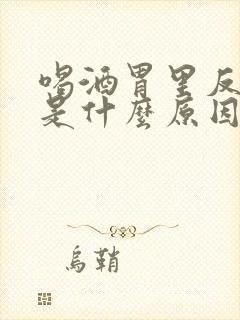 喝酒胃里反
是什麼原因
烏鞘